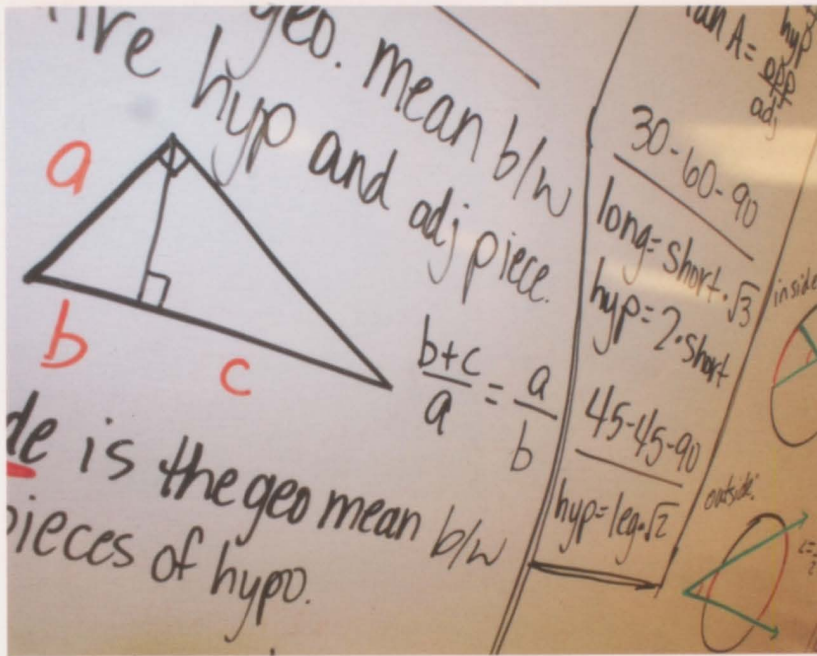 geo. mean b/w
hyp and adj piece.
a
b
c
b+c
a
=
a
b
is the geo mean b/w
pieces of hypo.
tan A = opp
adj
hyp
30-60-90
long = short · √3
hyp = 2 · short
45-45-90
hyp = leg · √2
inside
outside: